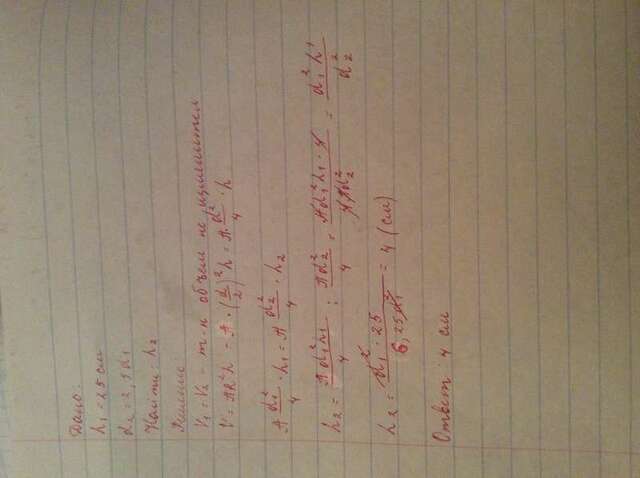 Дано:
h₁ = 25 см
d₂ = 2,5d₁
Найти: h₂
Решение:
V₁ = V₂ - т.к объем не изменится
V = πR²h = π · (d/2)² h = π · d²/4 · h
π d₁²/4 · h₁ = π d₂²/4 · h₂
h₂ = πd₁²h₁/4 : πd₂²/4 = πd₁²h₁ · 4/4 · πd₂² = d₁² h₁/d₂²
h₂ = d₁² · 25/6,25d₁² = 4 (см)
Ответ: 4 см